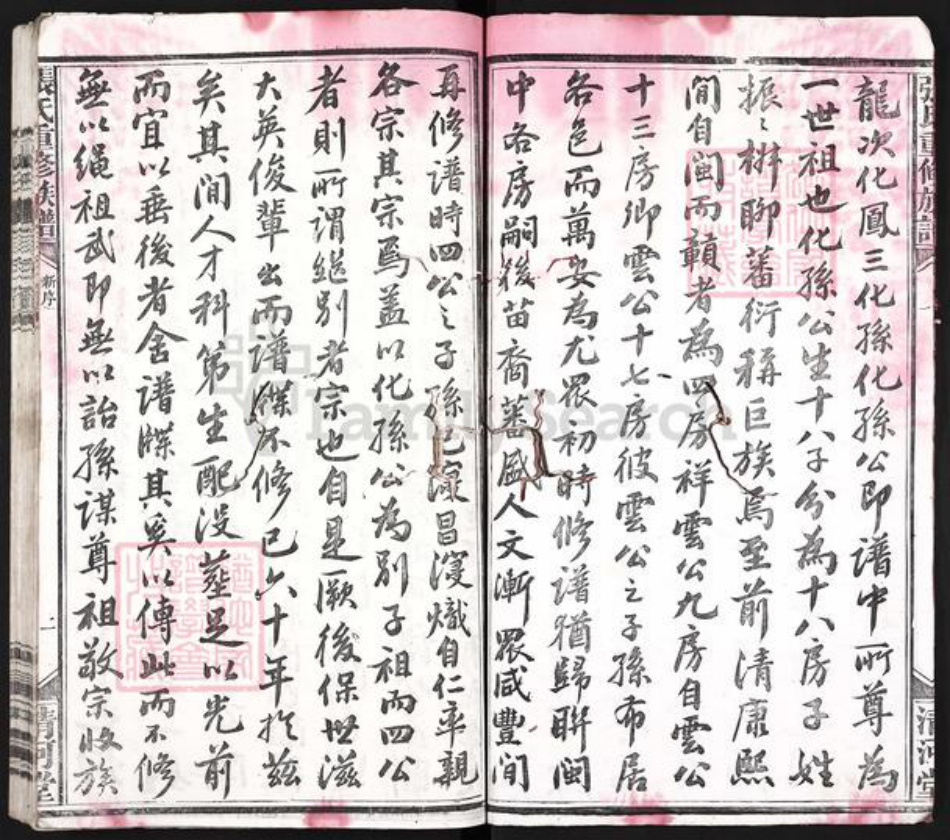 張氏重修族譜
清河堂
龍次化鳳三化孫化孫公即譜中所尊為
一世祖也化孫公生十八子分為十八房子姓
振〻椒聊蕃衍稱巨族焉至前清康熙
間自閩而贛者為四房祥雲公九房自雲公
十三房卿雲公十七房彼雲公之子孫布居
各邑而萬安為尤眾初時修譜猶歸聯閩
中各房嗣後苗裔蕃盛人文漸眾咸豐間
再修譜時四公之子孫已寖昌寖熾自仁率親
各宗其宗焉蓋以化孫公為別子祖而四公
者則所謂繼別者宗也自是厥後保世滋
大英俊輩出而譜牒不修已六十年於茲
矣其間人才科第生配沒塟足以光前
而宜以垂後者舍譜牒其奚以傳此而不修
無以繩祖武即無以詒孫謀尊祖敬宗收族
張氏重修族譜
新序
二
清河堂
FamilySearch